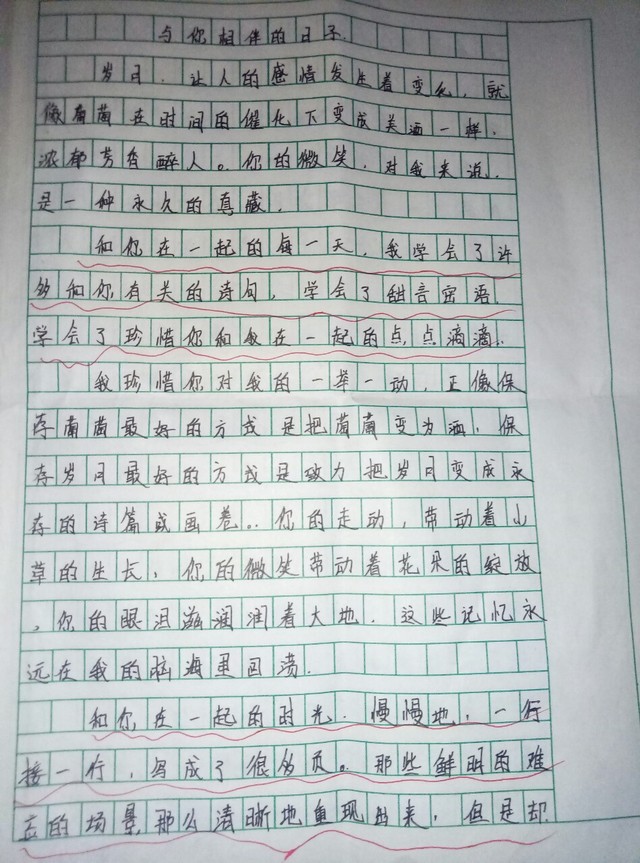 与你相伴的日子.
岁月.让人的感情发生着变化,就
像葡萄在时间的催化下变成美酒一样.
浓郁芳香醉人。你的微笑.对我来说.
是一种永久的真藏.
和你在一起的每一天,我学会了许
多和你有关的诗句,学会了甜言密语
学会了珍惜你和我在一起的点点滴滴.
我珍惜你对我的一举一动,正像保
存葡萄最好的方式是把葡萄变为酒,保
存岁月最好的方式是致力把岁月变成永
存的诗篇或画卷。你的走动,带动着小
草的生长,你的微笑带动着花朵的绽放
,你的眼泪滋润润着大地.这些记忆永
远在我的脑海里回荡.
和你在一起的时光.慢慢地,一行
接一行,写成了很多页。那些鲜明的难
忘的场景那么清晰地重现出来,但是却